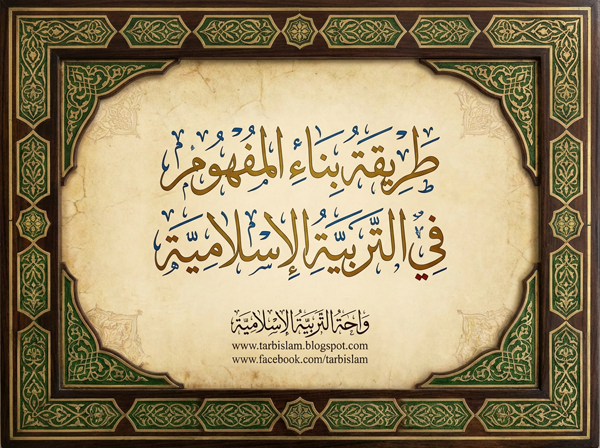 طَرِيقَةُ بِنَاءِ المَفْهُومِ
فِي التَّرْبِيَّةِ الإِسْلَامِيَّةِ
وَاحَةُ التَّرْبِيَّةِ الإِسْلَامِيَّةِ
www.tarbislam.blogspot.com
www.facebook.com/tarbislam